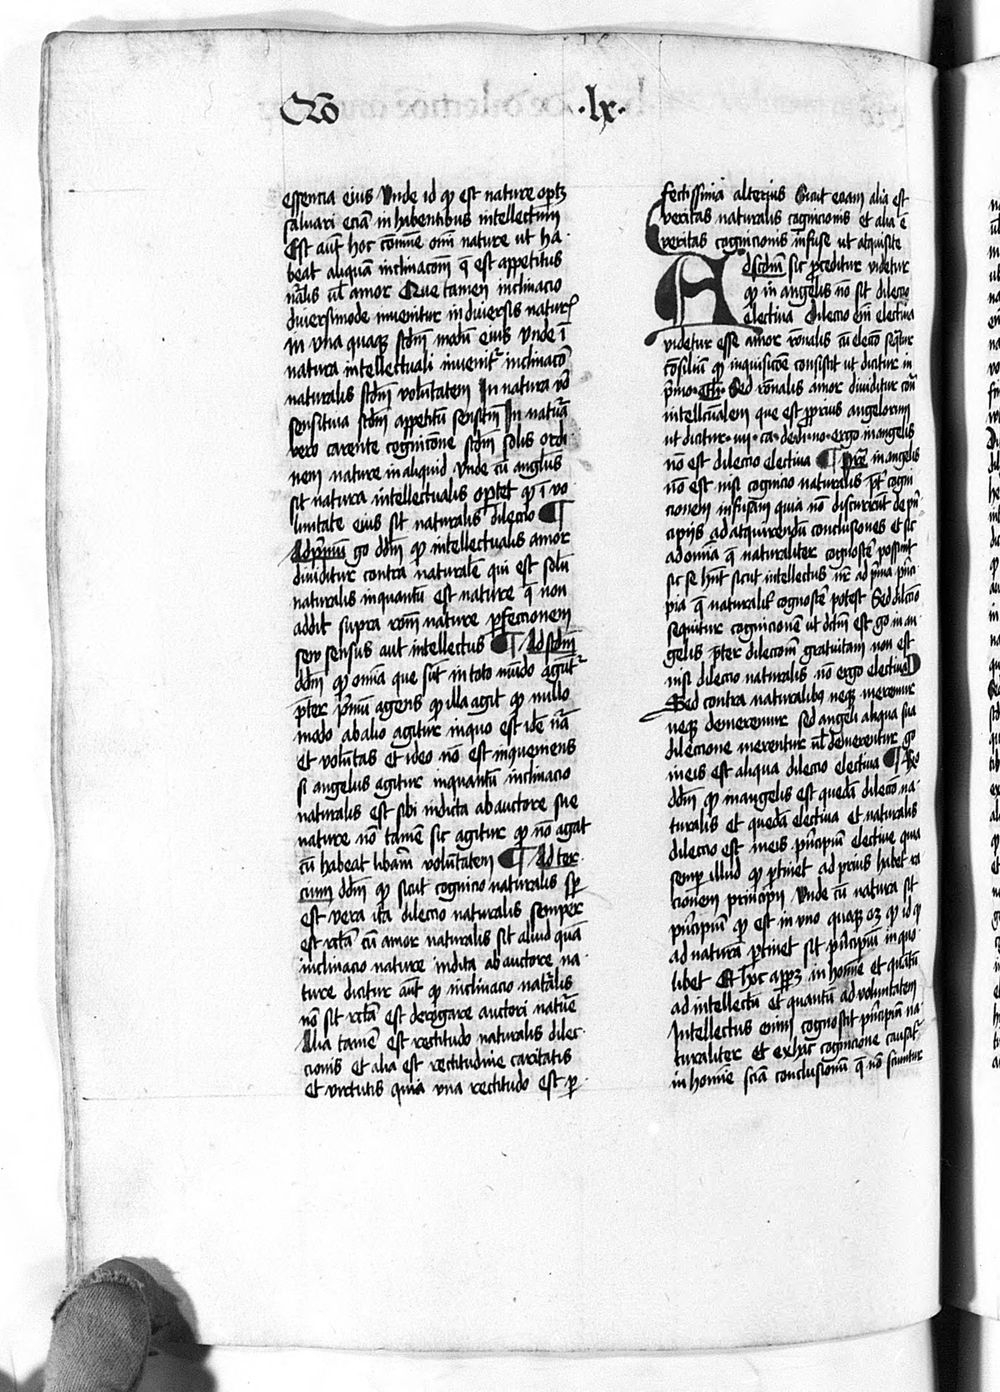 Qō
·lx·
essencia eius Vnde id qp est nature optꝫ
saluari eciā in habentibus intellectum
Est aut̄ hoc cōmūe om̄i nature ut ha
beat aliquam inclinacōm q̄ est appetitus
nr̄alis ul̄ amor Que tamen inclinacio
diuersimode inuenitur in diuersis naturꝭ
in vna quaqꝫ scdm̄ modū eius Vnde ī
natura intellectuali inuenit̄ inclinacō
naturalis scdm̄ voluntatem In natura v̄o
sensitiua scdm̄ appetitū sensitm̄ In natura
vero carente cognicione scdm̄ solis ordi
nem nature in aliquid Vnde cū anglus
sit natura intellectualis optet qp ī vo
luntate eius sit naturalis dilectio ¶
Ad pͥmum go dd̄m qp intellectualis amor
diuiditur contra naturale qui est solū
naturalis inquantū est nature q̄ non
addit supra rōm̄ nature pfeccionem
seu sensus aut intellectus ¶ Ad scdm̄
dd̄m qp omnia que sūt in toto mūdo agūt̄
pter pͥmū agens qp illa agit qp nullo
modo ab alio agitur in quo est idē nā
et volūtas et ideo nō est inqueniens
si angelus agitur inquantū inclinacio
naturalis est sibi indita ab auctore sue
nature nō tamē sic agitur qp nō agat
cū habeat libam̄ volūtatem ¶ Ad ter
cium dd̄m qp sicut cognicio naturalis sp̄
est vera ita dilectio naturalis semper
est rcta cū amor naturalis sit aliud quā
inclinacio nature indita ab auctore na
ture dicitur aūt qp inclinacio natalis
nō sit rcta est derogare auctori nature
Alia tamē est rectitudo naturalis dilec
cionis et alia est rectitudine caritatis
et virtutis quia vna rectitudo est p
fectissima alterius Sicut eciam alia est
veritas naturalis cognicionis et alia ē
veritas cognicionis infuse ut acquisite
Ad scdm̄ sic pceditur videtur
qp in angelis nō sit dilectio
electiua Dilectio em̄ electiua
videtur esse amor rōnalis cū elecō seqtur
cōsiliū qp inquisicōe consistit ut dicitur in
pͥmo eth̄. Sed rōnalis amor diuiditur cōn̄
intellcualem que est pprius angelorum
ut dicitur iiii ca de di no ergo in angelis
nō est dilectio electiua ¶ Pret̄ in angelis
nō est nisi cognicio naturalis pt̄ cogni
cionem infusam quia nō discurrūt de pn̄
cipijs ad acquirendū conclusiones et sic
ad omnia q̄ naturaliter cognoscē possūt
sic se hn̄t sicut intellectus nr̄ ad pͥma pn̄ci
pia q̄ naturalit̄ cognoscē potest Sed dilctio
sequitur cognicionē ut dictm̄ est go in an
gelis pter dilectiom̄ gratuitam non est
nisi dilectio naturalis nō ergo electiua
Sed contra naturalibꝫ neqꝫ meremur
neqꝫ demeremur sed angeli aliqua sua
dilectione merentur ul̄ demerentur go
in eis est aliqua dilectio electiua ¶ Rō
dd̄m qp in angelis est quedā dilectō na
turalis et quedā electiua et naturalis
dilectio est in eis pͥncipiū electiue quia
semp illud qp ptinet ad prius habet ra
cionem principij Vnde cū natura sit
pͥncipiū qp est in vno quaqꝫ oꝫ qp id qp
ad naturā ptinet sit pͥncipiū in quo
libet Et hoc appꝫ in homīe et quātū
ad intellectū et quantū ad voluntatem
Intellectus enim cognoscit pͥncipiū na
turaliter et ex hac cognicione causat̄
in homīe sciā conclusionū q̄ nō sciuntur